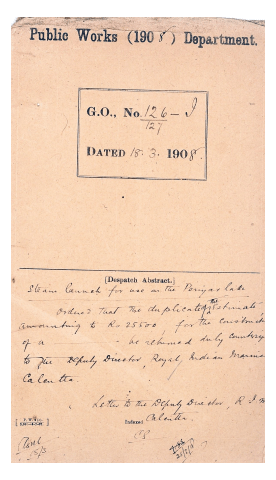 Public Works (1908) Department.
G.O., No. 126 – I
127
DATED 18. 3. 1908.
[Despatch Abstract.]
Steam launch for use on the Periyar lake
Ordered that the duplicate estimate
amounting to Rs 25500 for the construct
of a – be returned duly countersg
to the Deputy Director, Royal Indian Marine
Calcutta.
Letter to the Deputy Director, R. I. M
Calcutta.
Indexed